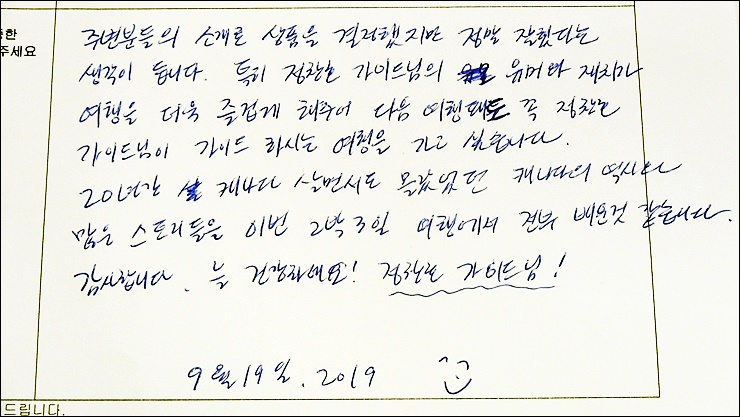 한
주세요
주변분들의 소개로 상품을 결정했지만 정말 잘했다는
생각이 듭니다. 특히 정찬호 가이드님의 유머와 재치가
여행을 더욱 즐겁게 해주어 다음 여행때도 꼭 정찬호
가이드님이 가이드 하시는 여행을 가고 싶습니다.
20년간 캐나다 살면서도 몰랐었던 캐나다의 역사와
많은 스토리들을 이번 2박3일 여행에서 전부 배운것 같습니다.
감사합니다. 늘 건강하세요! 정찬호 가이드님!
9월 19일. 2019
드립니다.